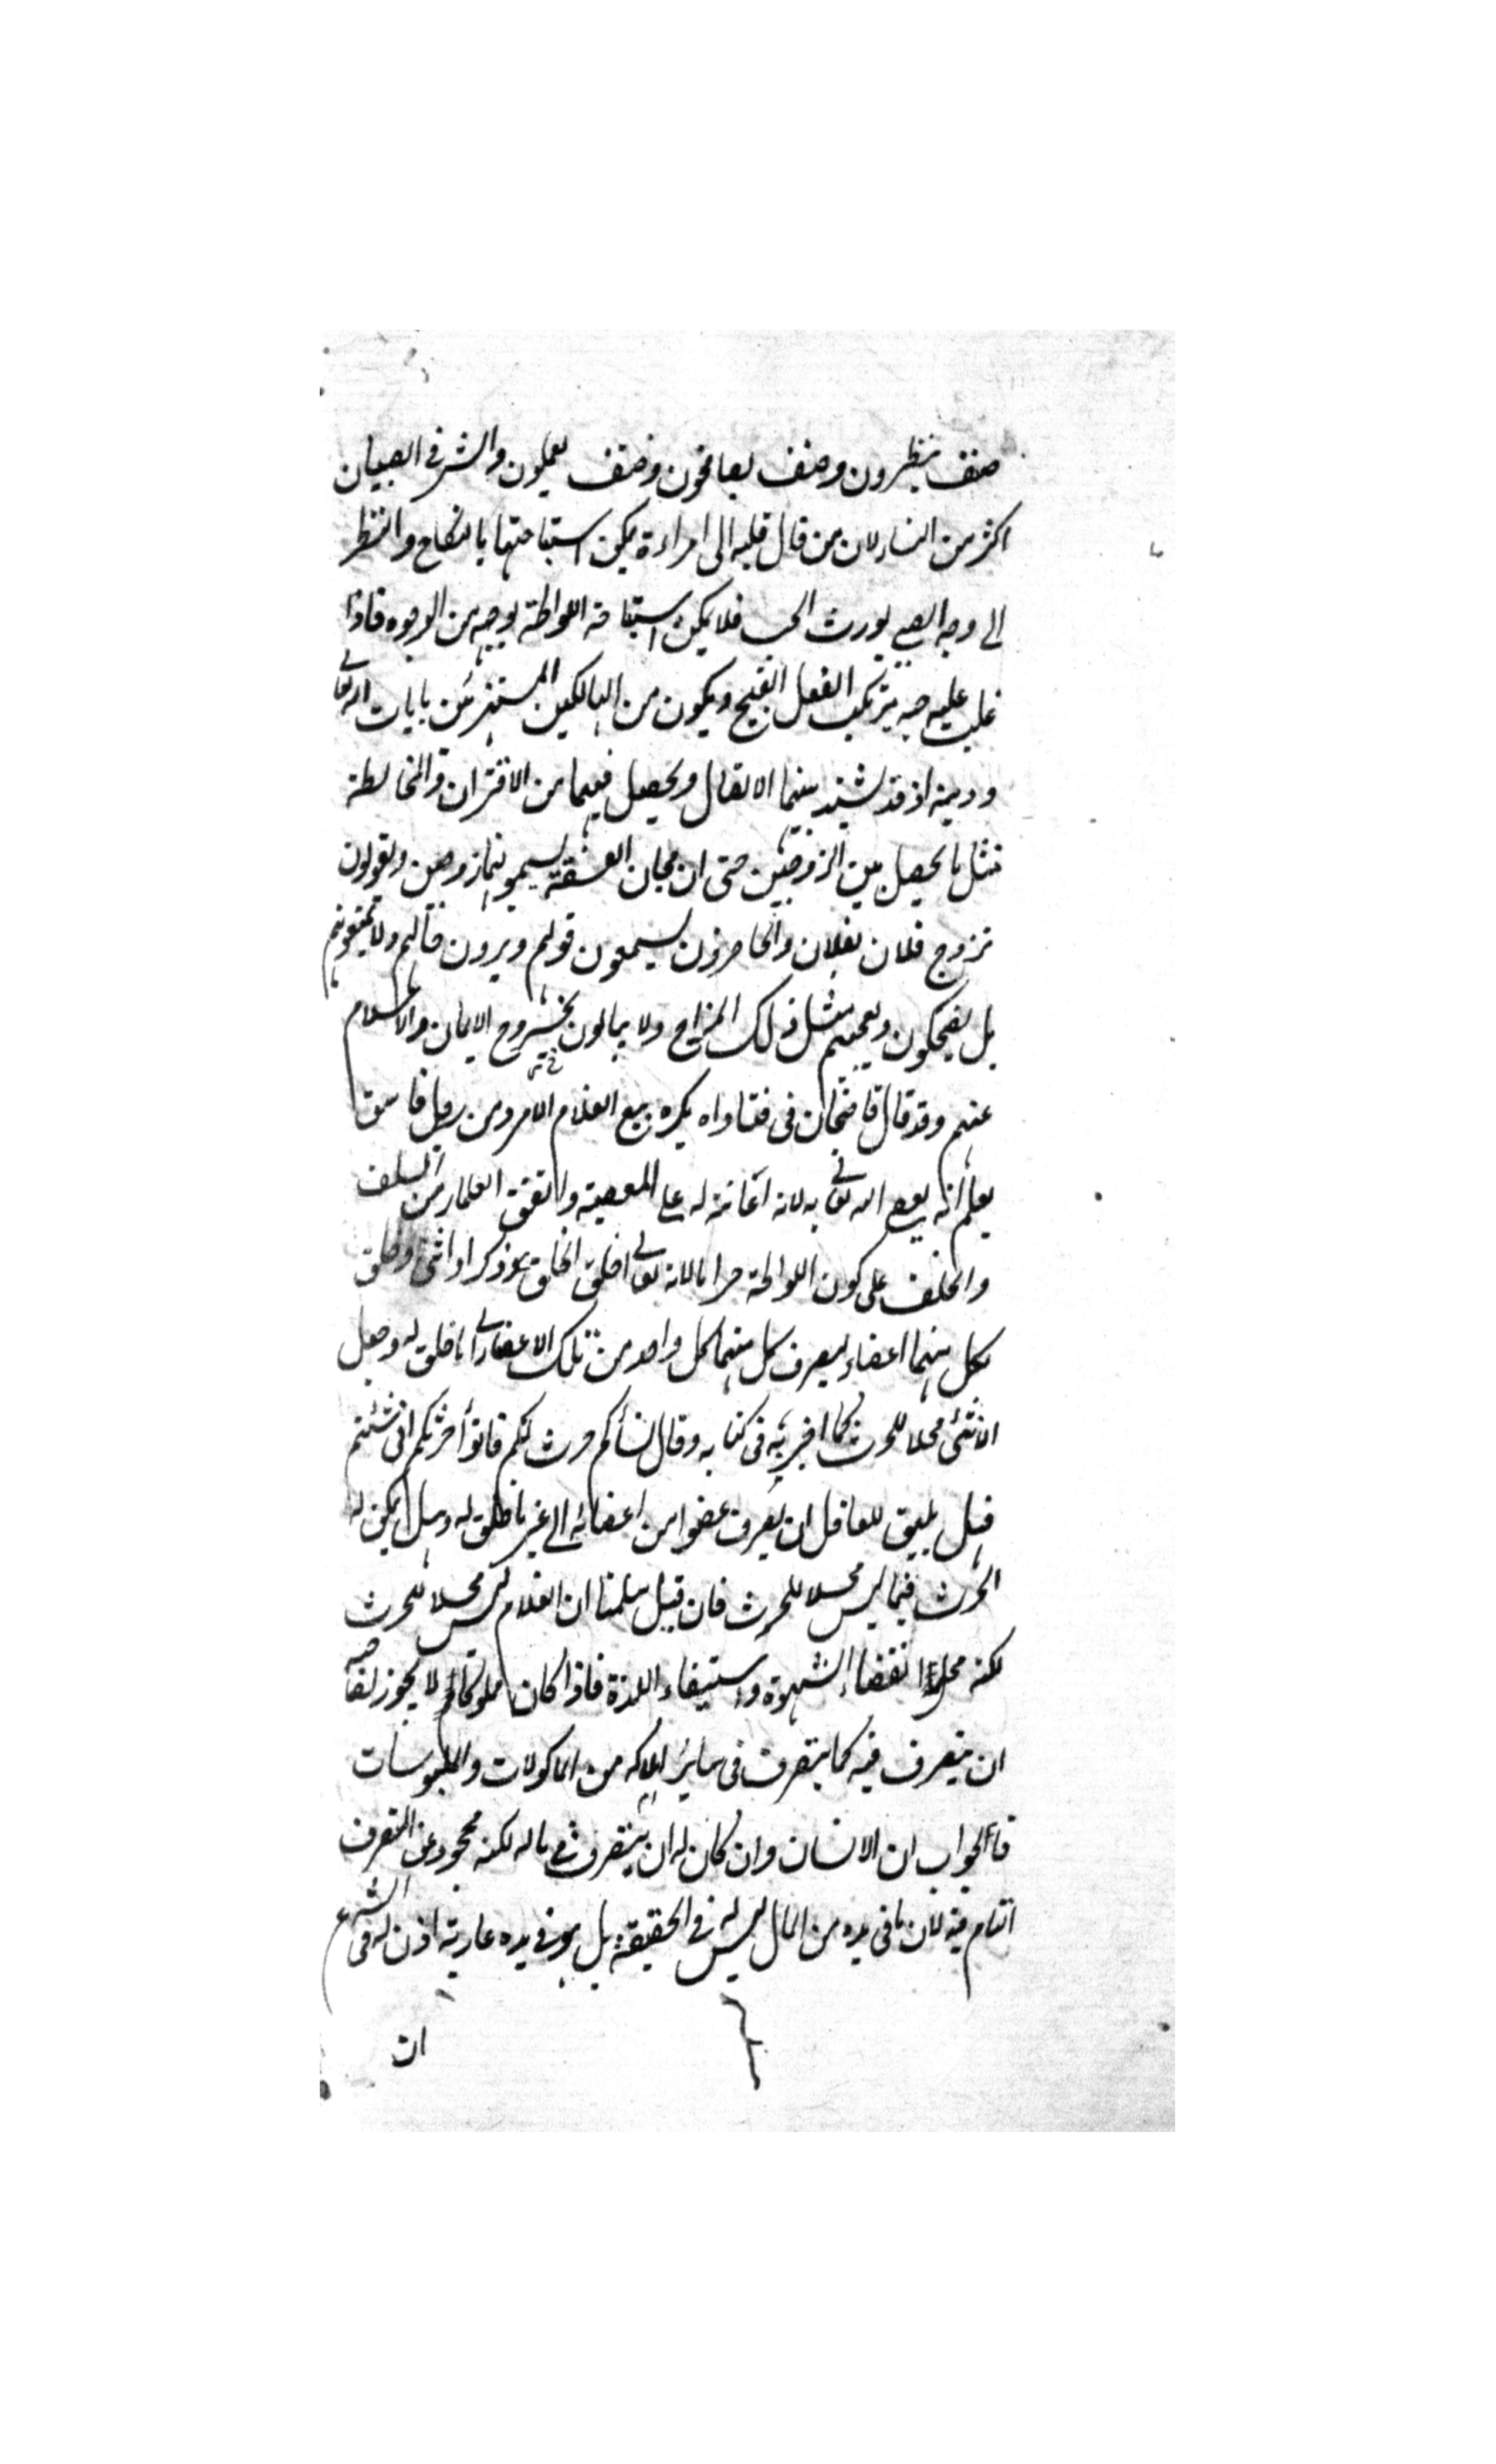 صنف ينظرون وصنف يصافحون وصنف يعملون والشر في الصبيان
اكثر من النساء لان من مال قلبه الى امراءة يمكن استباحتها بالنكاح والنظر
الى وجه الصبي يورث الحب فلا يمكن استباحة اللواطة بوجه من الوجوه فاذا
غلب عليه حبه يرتكب الفعل القبيح ويكون من الهالكين المستهزئين بايات الله تعالى
ودينه اذ قد يشتد بينهما الاتصال ويحصل فيهما من الاقتران والمخالطة
مثل ما يحصل بين الزوجين حتى ان مجان الفسقة يسمونهما زوجين ويقولون
تزوج فلان بفلان والحاضرون يسمعون قولهم ويرون حالهم ولا يمنعونهم
بل يضحكون ويعجبهم مثل ذلك المزاح ولا يبالون بخروج الايمان والاسلام
عنهم وقد قال قاضيخان في فتاواه يكره بيع الغلام الامرد من رجل فاسق
يعلم انه يعصي الله تعالى به لانه اعانة له على المعصية واتفق العلماء من السلف
والخلف على كون اللواطة حراما لانه تعالى خلق الخلق ذكرا وانثى وخلق
لكل منهما اعضاء ليصرف كل منهما كل واحد من تلك الاعضاء الى ما خلق له وجعل
الانثى محلا للحرث كما اخبر به في كتابه وقال نسأكم حرث لكم فاتوأ حرثكم انى شئتم
فهل يليق للعاقل ان يصرف عضوا من اعضائه الى غير ما خلق له وهل يمكن له
الحرث فيما ليس محلا للحرث فان قيل سلمنا ان الغلام ليس محلا للحرث
لكنه محل انقضاء الشهوة واستيفاء اللذة فاذا كان مملوكا لم لا يجوز لصاحبه
ان يتصرف فيه كما يتصرف في سائر املاكه من الماكولات والملبوسات
فالجواب ان الانسان وان كان له ان يتصرف في ماله لكنه محجور عن التصرف
التام فيه لان ما في يده من المال ليس له في الحقيقة بل هو في يده عارية اذن له في الشرع
ان